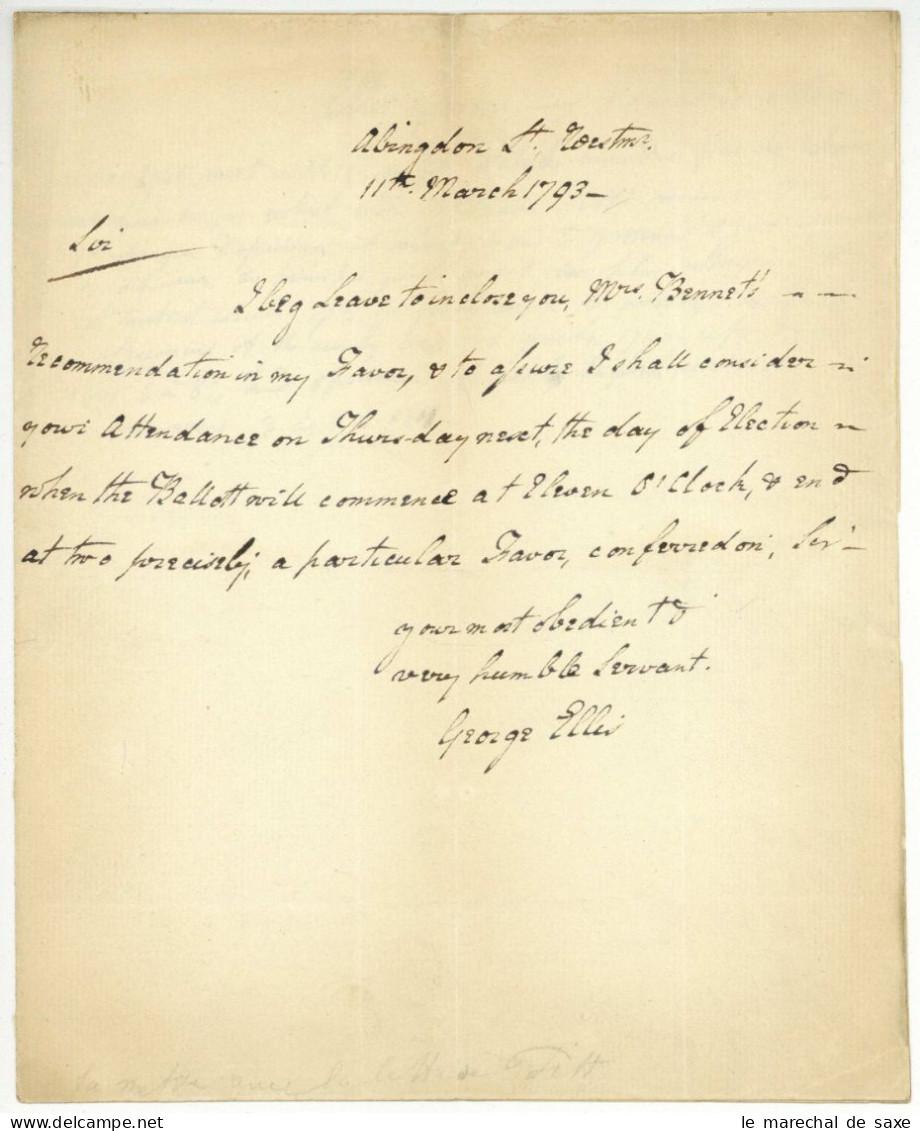 Abingdon St, Westmr.
11th. March 1793 —
Sir
I beg Leave to inclose you, Mrs. Bennet's
Recommendation in my Favor, & to assure I shall consider
your Attendance on Thursday next, the day of Election
when the Ballott will commence at Eleven O'Clock, & end
at two precisely; a particular Favor, conferred on, Sir
your most obedient &
very humble Servant.
George Ellis
la lettre de Pitt
le marechal de saxe